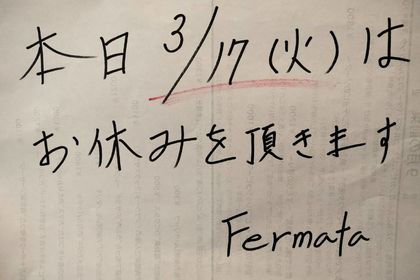 本日 3/17(火)は
お休みを頂きます
Fermata